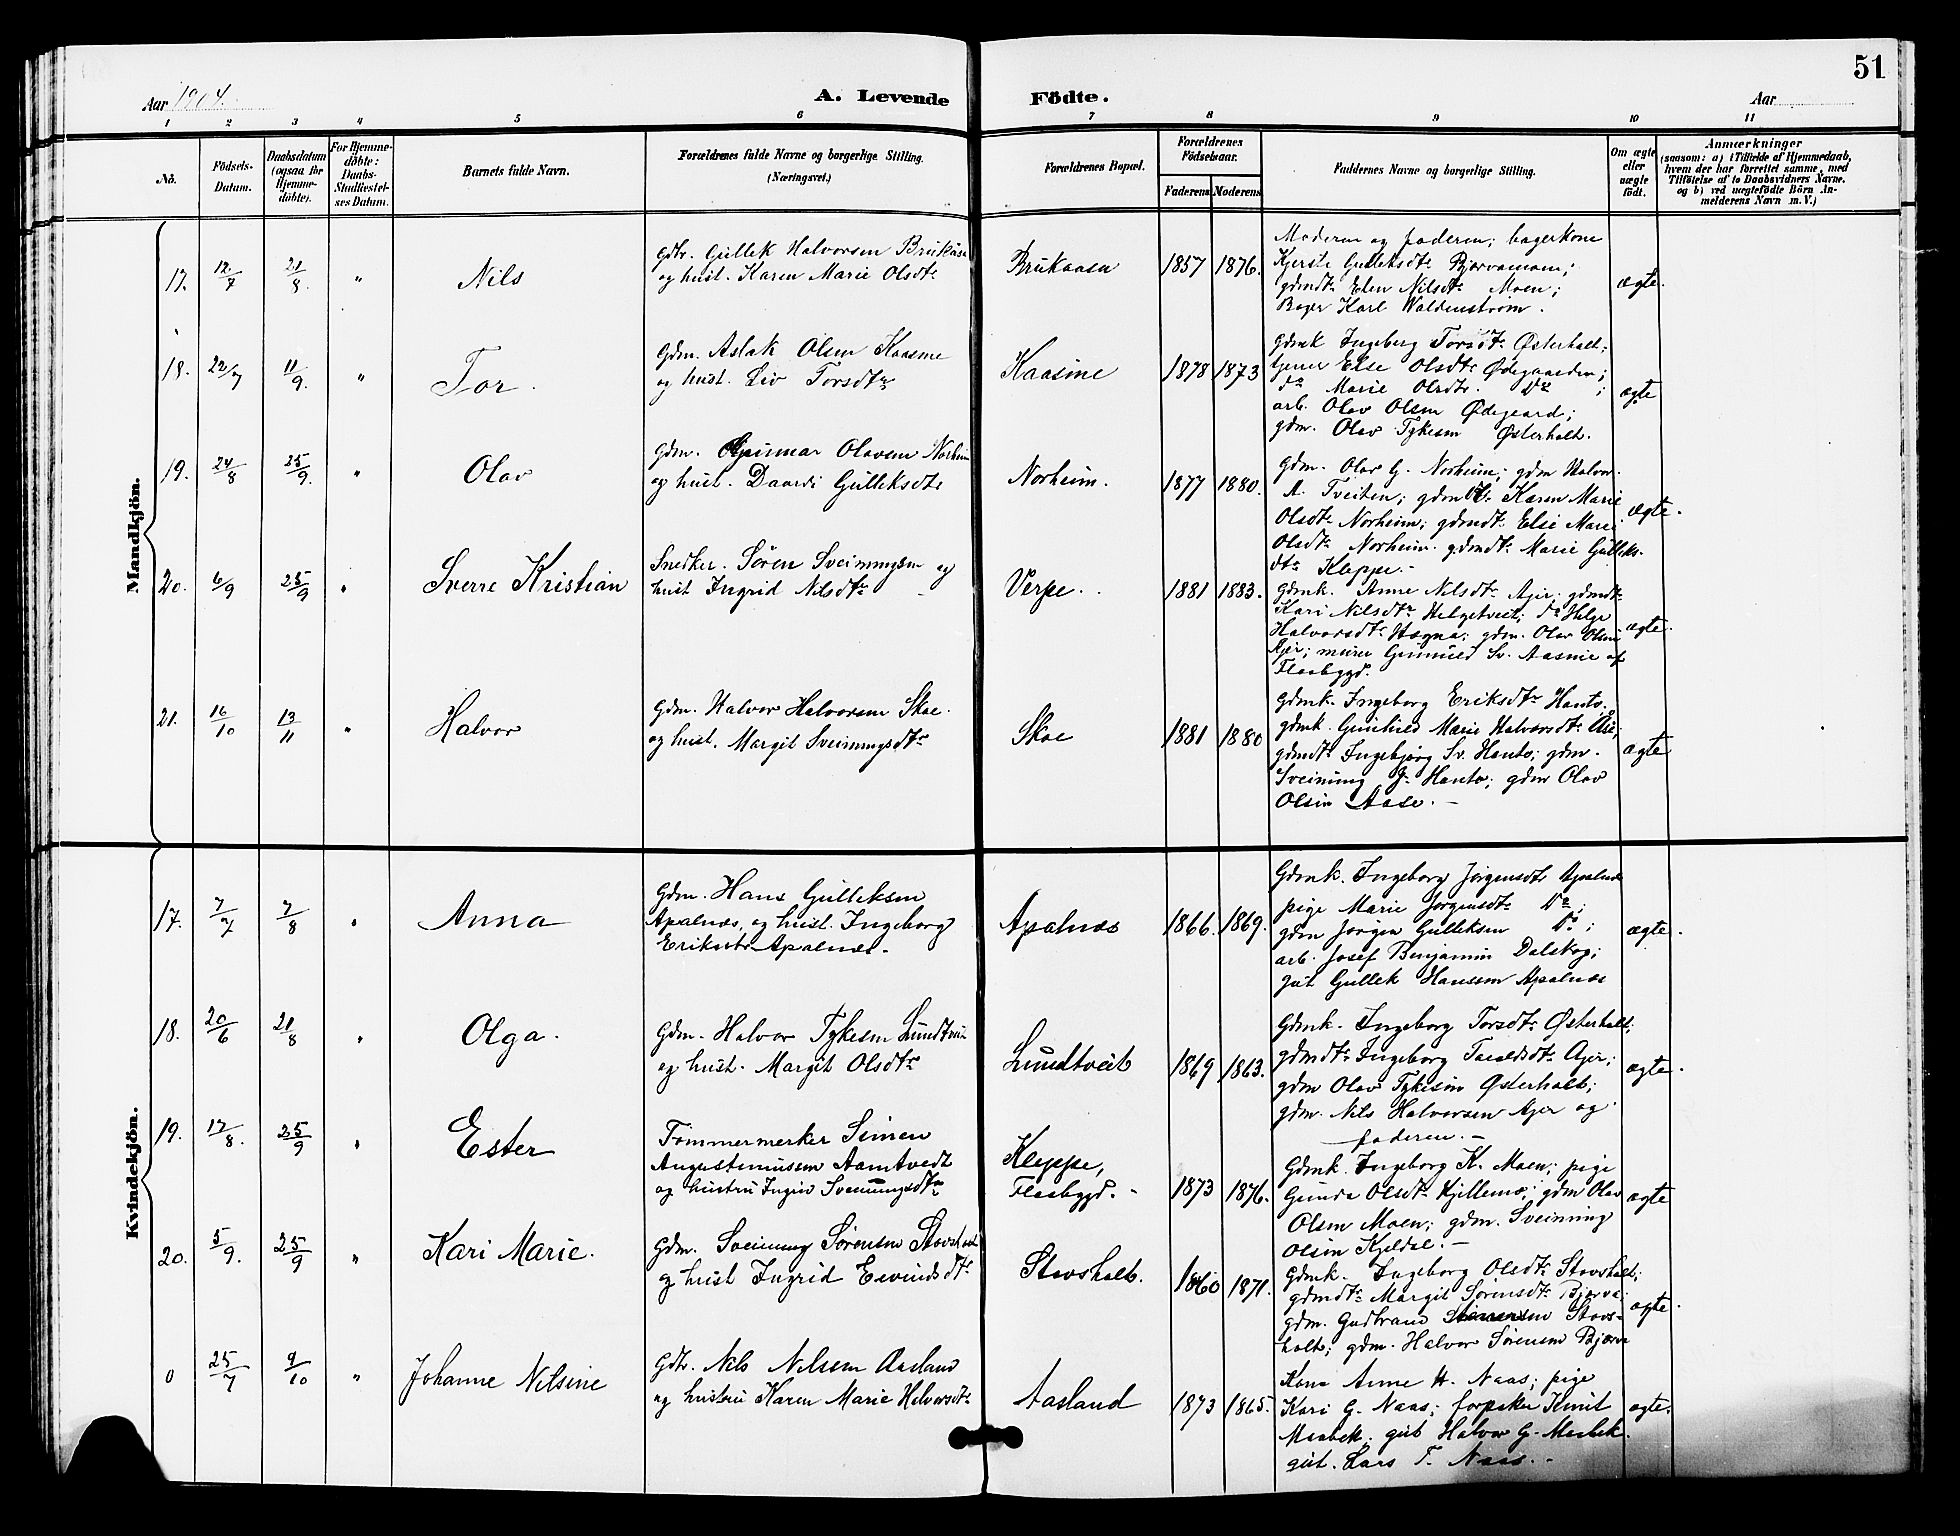 51
Aar 1904.
A. Levende Födte.
Aar
1 2 3 4 5 6 7 8 9 10 11
No.
Födsels-
Datum.
Daabsdatum
(ogsaa for
Hjemme-
döbte).
For Hjemme-
döbte:
Daabs-
Stadfæstel-
ses Datum.
Barnets fulde Navn.
Forældrenes fulde Navne og borgerlige Stilling.
(Næringsvei.)
Forældrenes Bopæl.
Forældrenes
Födselsaar.
Faderens Moderens
Faddernes Navne og borgerlige Stilling.
Om ægte
eller
uægte
født.
Anmærkninger
(saasom: a) i Tilfælde af Hjemmedaab,
hvem der har forrettet samme, med
Tilföielse af to Daabsvidners Navne,
og b) ved uægtefödte Börn An-
melderens Navn m. V.)
Mandkjön.
17. 12/7 21/8. " Nils
Gdbr. Gullek Halvorsen Brukåsa
og hust. Karen Marie Olsdtr
Brukaasa 1857 1876.
Moderen og faderen; bagerkone
Kjersti Gulleksdtr Bjørvamoen;
gdmdtr Elen Nilsdtr Moen;
Bager Karl Waldenstrøm.
ægte.
18. 22/7 11/9. " Tor.
Gdm. Aslak Olsen Kaasine
og hust. Liv Torsdtr
Kaasine 1878 1873
Gdmk Ingeborg Torsdtr Østerholt;
tjener Else Olsdtr Ødegaarden;
do Marie Olsdtr. Do ;
arb. Olav Olsen Ødegaard;
gdm. Olav Tykesen Østerholt.
ægte
19. 24/8 25/9. " Olav
Gdm. Gunnar Olavsen Norheim
og hust. Daardi Gulleksdtr
Norheim. 1877 1880.
Gdm. Olav G. Norheim; gdm Halvor
A. Tveiten; gdmk. Karen Marie
Olsdtr Norheim; gdmdtr. Else Marie
Olsdtr Norheim. gdmdtr Marie Gulleks-
dtr Kleppe. -
ægte.
20. 6/9 25/9 " Sverre Kristian
Snedker. Sören Sveinungsen og
hust Ingrid Nilsdtr
Verpe. 1881 1883.
Gdmk. Anne Nilsdtr Ajer; gdmdtr
Kari Nilsdtr Helgetveit; do Helge
Halvorsdtr Hægna; gdm. Olav Olsen
Ajer; murer Gunnuld Sv. Aasnie af
Flaabygd.
ægte.
21. 16/10 13/11 " Halvor
Gdm. Halvor Halvorsen Skoe.
og hust. Margit Sveinungsdtr
Skoe 1881 1880
Gdmk. Ingeborg Eriksdtr Hanto,
gdmk. Gunhild Marie Halvorsdtr Åse;
gdmdtr Ingebjørg Sv. Hanto; gdm.
Sveinung G. Hanto; gdm Olav
Olsen Aase. -
ægte
Kvindekjön.
17. 7/7 7/8 " Anna
Gdm. Hans Gulleksen
Apalnæs, og hust. Ingeborg
Eriksdtr Apalnæs.
Apalnæs 1866. 1869.
Gdmk. Ingeborg Jørgensdtr Apalnæs
pige Marie Jørgensdtr Do;
gdm Jørgen Gulleksen Do;
arb. Josef Benjamin Dalskog;
gut Gullek Hanssen Apalnæs
ægte.
18. 20/6 21/8 " Olga.
Gdm. Halvor Tykesen Lundtveit
og hust. Margit Olsdtr
Lundtveit 1869 1863.
Gdmk. Ingeborg Torsdtr Østerholt;
gdmdtr Ingeborg Taraldsdtr Ajer;
gdm Olav Tykesen Østerholt;
gdm. Nils Halvorsen Ajer og
faderen. -
ægte.
19. 17/8. 25/9 " Ester
Tømmermerker Simen
Augustinussen Aamtvedt
og hustru Ingrid Sveinungsdtr
Kleppe,
Flaabygd. - 1873 1876.
Gdmk. Ingeborg K. Moen; pige
Gunda Olsdtr Kjillemo; gdm Olav
Olsen Moen; gdm. Sveinung
Olsen Kjeldal. -
ægte
20. 5/9. 25/9 " Kari Marie.
Gdm. Sveinung Sørensen Stovsholt
og hust Ingrid Eivindsdtr
Stovsholt. 1860 1871.
Gdmk. Ingeborg Olsdtr Stovsholt;
gdmdtr Margit Sørensdtr Bjørva;
gdm. Gudbrand Steinarsen Stovs-
holt; gdm. Halvor Sørensen Bjørva
ægte.
0 25/7 9/10 " Johanne Nilsine
Gdbr. Nils Nilssen Aasland
og hustru Karen Marie Halvorsdtr
Aasland 1873 1865.
Kona Anne H. Naas; pige
Kari G. Naas; forpakter Knut
Maabek. gut Halvor G. Maabek.
gut. Lars T. Naas. -
ægte.